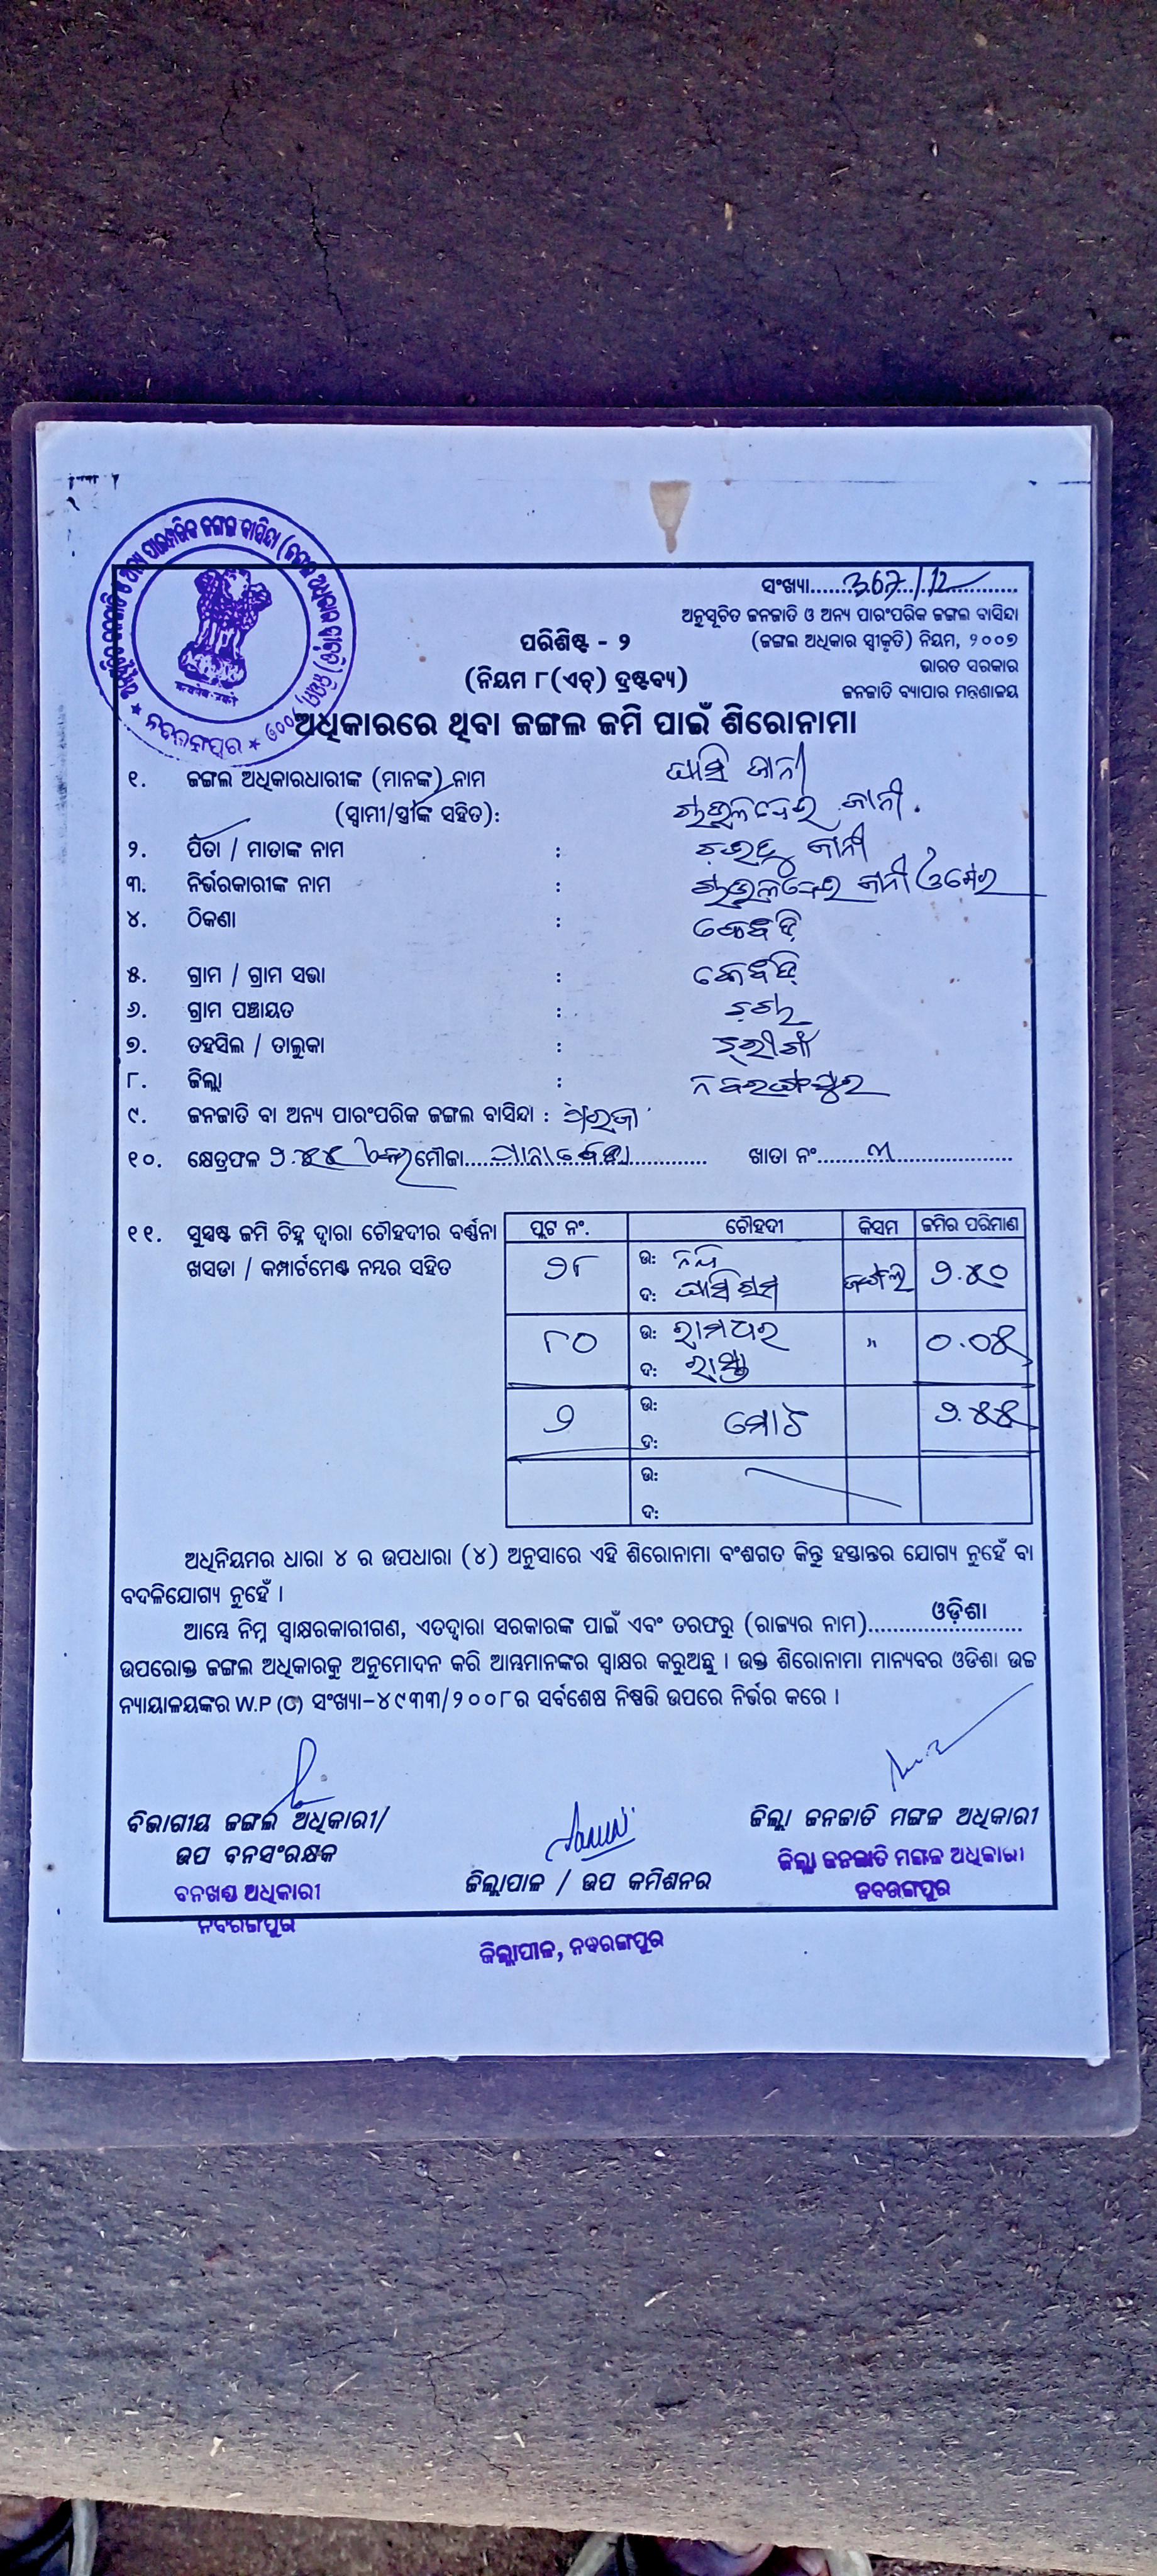 ସଂଖ୍ୟା...367/12...
ଅନୁସୂଚିତ ଜନଜାତି ଓ ଅନ୍ୟ ପାରଂପରିକ ଜଙ୍ଗଲ ବାସିନ୍ଦା
(ଜଙ୍ଗଲ ଅଧିକାର ସ୍ୱୀକୃତି) ନିୟମ, ୨୦୦୭
ଭାରତ ସରକାର
ଜନଜାତି ବ୍ୟାପାର ମନ୍ତ୍ରଣାଳୟ
ପରିଶିଷ୍ଟ - ୨
(ନିୟମ ୮(ଏଚ୍) ଦ୍ରଷ୍ଟବ୍ୟ)
ନବରଙ୍ଗପୁର
ଅଧିକାରରେ ଥିବା ଜଙ୍ଗଲ ଜମି ପାଇଁ ଶିରୋନାମା
୧. ଜଙ୍ଗଲ ଅଧିକାରଧାରୀଙ୍କ (ମାନଙ୍କ) ନାମ ଘାସି ଜାନୀ
(ସ୍ୱାମୀ/ସ୍ତ୍ରୀଙ୍କ ସହିତ): ଜାନୀ
୨. ପିତା / ମାତାଙ୍କ ନାମ : ଜାନୀ
୩. ନିର୍ଭରକାରୀଙ୍କ ନାମ : ଜାନୀ
୪. ଠିକଣା :
୫. ଗ୍ରାମ / ଗ୍ରାମ ସଭା :
୬. ଗ୍ରାମ ପଞ୍ଚାୟତ :
୭. ତହସିଲ / ତାଲୁକା : ଝରୀଗାଁ
୮. ଜିଲ୍ଲା : ନବରଙ୍ଗପୁର
୯. ଜନଜାତି ବା ଅନ୍ୟ ପାରଂପରିକ ଜଙ୍ଗଲ ବାସିନ୍ଦା : ପରଜା
୧୦. କ୍ଷେତ୍ରଫଳ ୨.୪୫ ମୌଜା...... ଖାତା ନଂ...୩...
୧୧. ସୁସ୍ପଷ୍ଟ ଜମି ଚିହ୍ନ ଦ୍ୱାରା ଚୌହଦୀର ବର୍ଣ୍ଣନା
ଖସଡା / କମ୍ପାର୍ଟମେଣ୍ଟ ନମ୍ବର ସହିତ
ପ୍ଲଟ ନଂ. ଚୌହଦୀ କିସମ ଜମିର ପରିମାଣ
୨୮ ଉ: ନଦି ଜଙ୍ଗଲ ୨.୪୦
ଦ: ଘାସିରାମ
୮୦ ଉ: ରାମଧର " ୦.୦୫
ଦ: ରାସ୍ତା
୨ ଉ: ମୋଟ ୨.୪୫
ଦ:
ଉ:
ଦ:
ଅଧିନିୟମର ଧାରା ୪ ର ଉପଧାରା (୪) ଅନୁସାରେ ଏହି ଶିରୋନାମା ବଂଶଗତ କିନ୍ତୁ ହସ୍ତାନ୍ତର ଯୋଗ୍ୟ ନୁହେଁ ବା
ବଦଳିଯୋଗ୍ୟ ନୁହେଁ ।
ଆମ୍ଭେ ନିମ୍ନ ସ୍ୱାକ୍ଷରକାରୀଗଣ, ଏତଦ୍ୱାରା ସରକାରଙ୍କ ପାଇଁ ଏବଂ ତରଫରୁ (ରାଜ୍ୟର ନାମ)...ଓଡ଼ିଶା...
ଉପରୋକ୍ତ ଜଙ୍ଗଲ ଅଧିକାରକୁ ଅନୁମୋଦନ କରି ଆମ୍ଭମାନଙ୍କର ସ୍ୱାକ୍ଷର କରୁଅଛୁ । ଉକ୍ତ ଶିରୋନାମା ମାନ୍ୟବର ଓଡିଶା ଉଚ୍ଚ
ନ୍ୟାୟାଳୟଙ୍କର W.P (C) ସଂଖ୍ୟା-୪୯୩୩/୨୦୦୮ର ସର୍ବଶେଷ ନିଷ୍ପତ୍ତି ଉପରେ ନିର୍ଭର କରେ ।
ବିଭାଗୀୟ ଜଙ୍ଗଲ ଅଧିକାରୀ/
ଉପ ବନସଂରକ୍ଷକ
ବନଖଣ୍ଡ ଅଧିକାରୀ
ନବରଙ୍ଗପୁର
ଜିଲ୍ଲାପାଳ / ଉପ କମିଶନର
ଜିଲ୍ଲାପାଳ, ନବରଙ୍ଗପୁର
ଜିଲ୍ଲା ଜନଜାତି ମଙ୍ଗଳ ଅଧିକାରୀ
ଜିଲ୍ଲା ଜନଜାତି ମଙ୍ଗଳ ଅଧିକାରୀ
ନବରଙ୍ଗପୁର